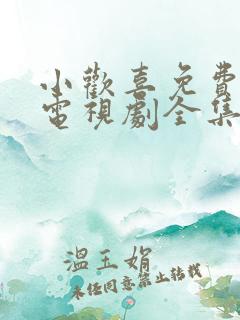 小歡喜免費
電視劇全集
溫玉娟
未經同意禁止轉載